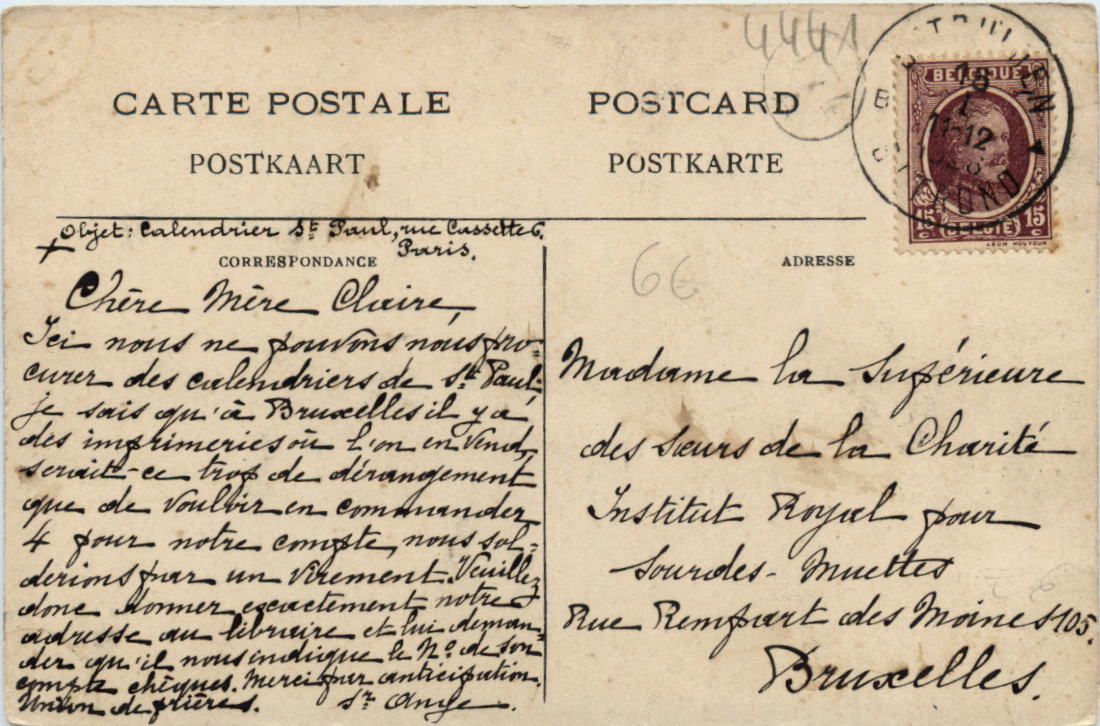 4441
CARTE POSTALE
POSTKAART
POSTCARD
POSTKARTE
ST TRUIDEN
ST TROND
18
1
11-12
BELGIQUE
15 c
15 c
BELGIË
LÉON HOUYOUX
Objet: Calendrier St Paul, rue Cassette 6.
Paris.
CORRESPONDANCE
ADRESSE
6€
Chère Mère Claire,
Ici nous ne pouvons nous pro-
curer des calendriers de St Paul:
je sais qu'à Bruxelles il y a
des imprimeries où l'on en vend,
serait-ce trop de dérangement
que de vouloir en commander
4 pour notre compte, nous sol-
derions par un virement. Veuillez
donc donner exactement notre
adresse au libraire et lui deman-
der qu'il nous indique le No de son
compte chèques. Merci par anticipation.
Union de prières. Sr Ange.
Madame la Supérieure
des Sœurs de la Charité
Institut Royal pour
Sourdes-Muettes
Rue Rempart des Moines 105.
Bruxelles.